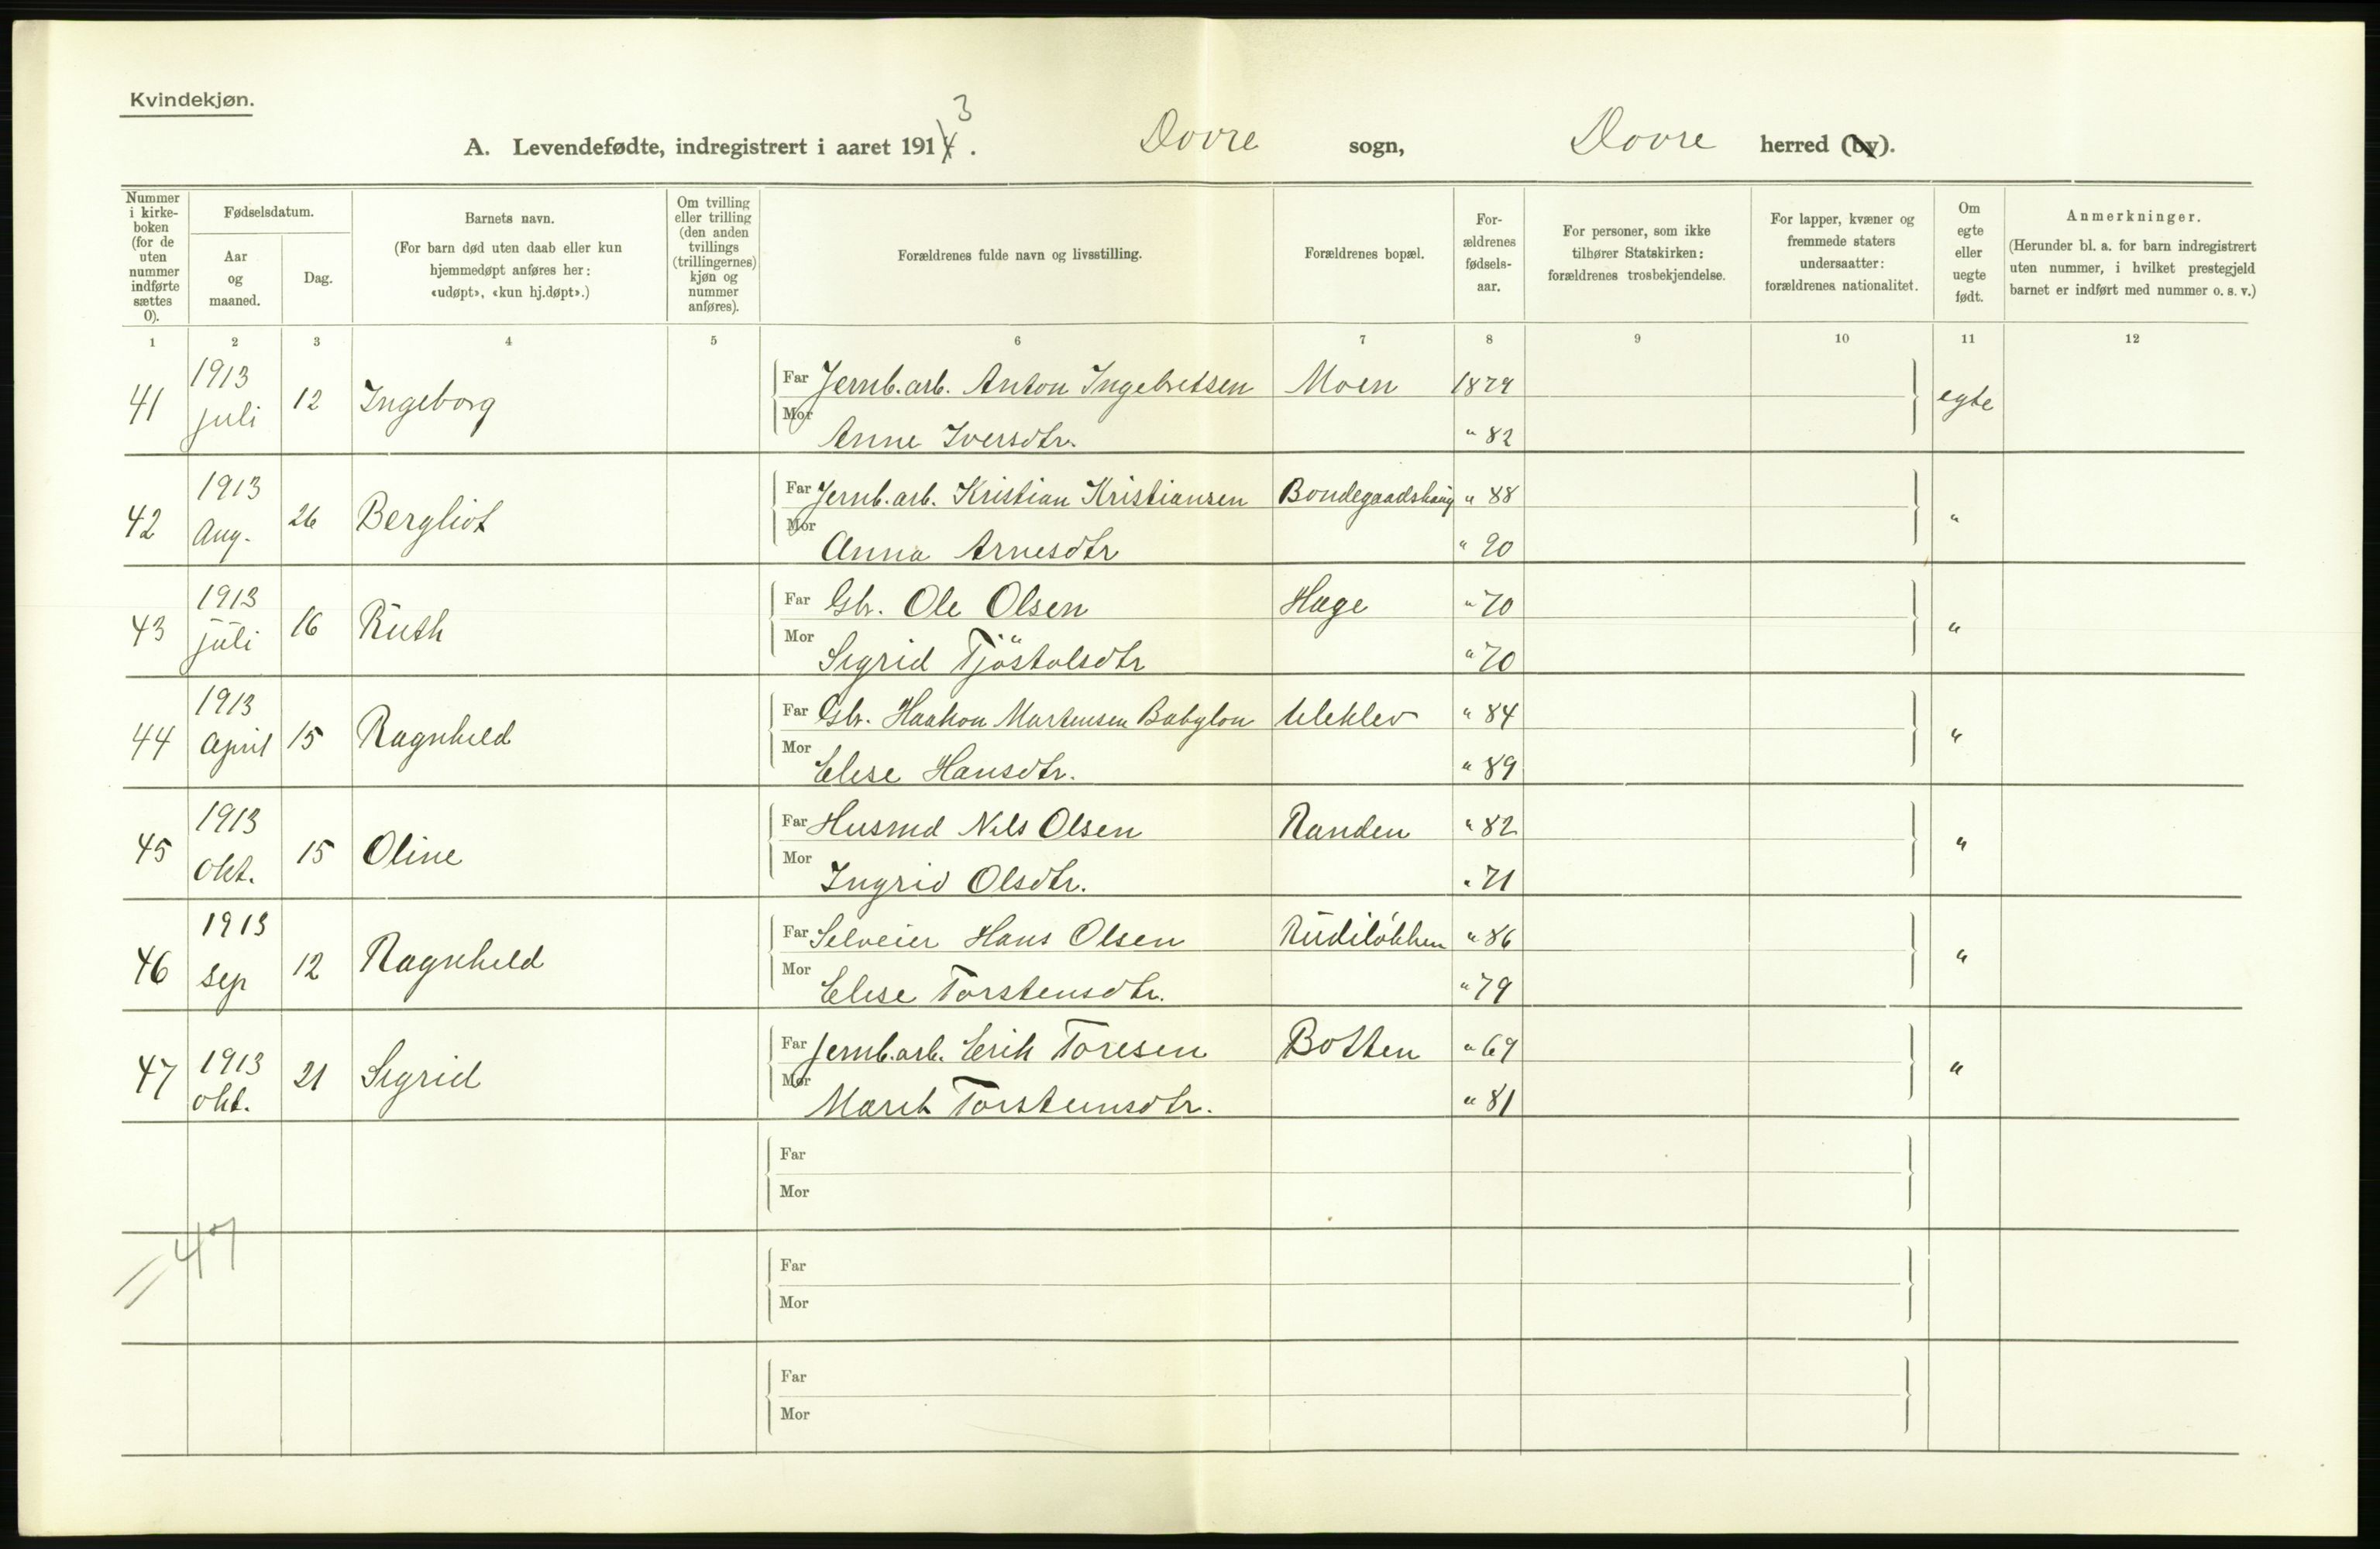 Kvindekjøn.
A. Levendefødte, indregistrert i aaret 1914 3. Dovre sogn, Dovre herred (by).
Nummer i kirke-boken (for de uten nummer indførte sættes 0).
Fødselsdatum.
Aar og maaned.
Dag.
Barnets navn.
(For barn død uten daab eller kun
hjemmedøpt anføres her:
«udøpt», «kun hj.døpt».)
Om tvilling
eller trilling
(den anden
tvillings
(trillingernes)
kjøn og
nummer
anføres).
Forældrenes fulde navn og livsstilling.
Forældrenes bopæl.
For-
ældrenes
fødsels-
aar.
For personer, som ikke
tilhører Statskirken:
forældrenes trosbekjendelse.
For lapper, kvæner og
fremmede staters
undersaatter:
forældrenes nationalitet.
Om
egte
eller
uegte
født.
Anmerkninger.
(Herunder bl. a. for barn indregistrert
uten nummer, i hvilket prestegjeld
barnet er indført med nummer o. s. v.)
1 2 3 4 5 6 7 8 9 10 11 12
41 1913 juli 12 Ingeborg Far Jernb.arb. Anton Ingebretsen Moen 1879 egte
Mor Anne Iversdtr. " 82
42 1913 Aug. 26 Bergliot Far Jernb.arb. Kristian Kristiansen Bondegaardshaug " 88 "
Mor Anna Arnesdtr " 90
43 1913 juli 16 Ruth Far Gbr. Ole Olsen Hage " 70 "
Mor Sigrid Tjöstolsdtr " 70
44 1913 april 15 Ragnhild Far Gbr. Haakon Martensen Babylon Uleklev " 84 "
Mor Elise Hansdtr. " 89
45 1913 Okt. 15 Oline Far Husmd Nils Olsen Randen " 82 "
Mor Ingrid Olsdtr. " 71
46 1913 sep 12 Ragnhild Far Selveier Hans Olsen Rudiløkken " 86 "
Mor Elise Torstensdtr. " 79
47 1913 okt. 21 Sigrid Far Jernb.arb. Erik Toresen Botten " 69 "
Mor Marit Torsteinsdtr. " 81
Far
Mor
47
Far
Mor
Far
Mor